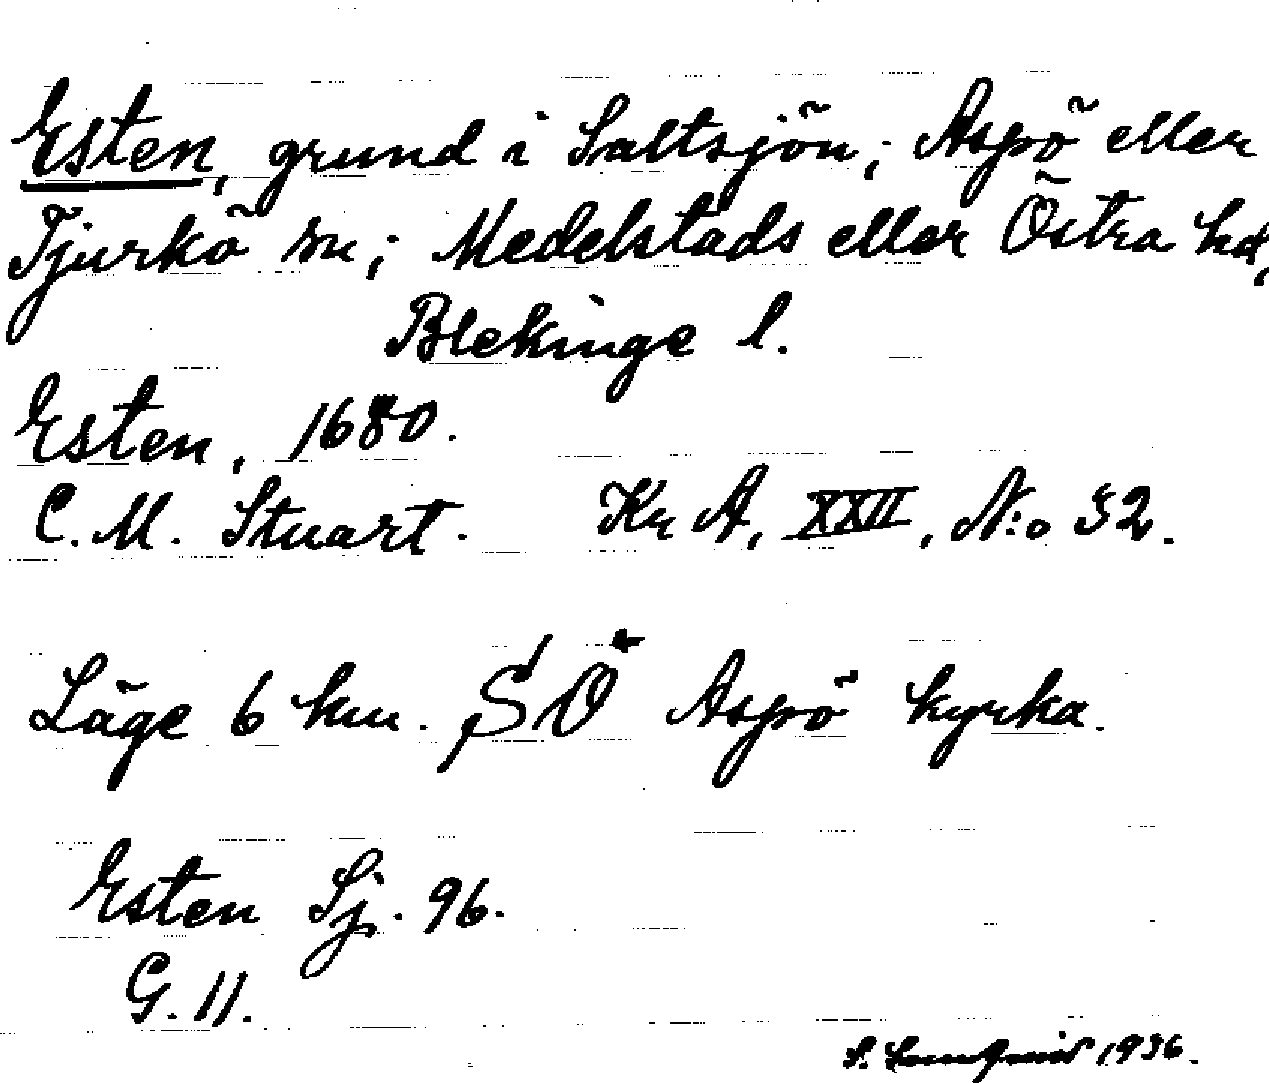 Esten, grund i Saltsjön; Aspö eller
Tjurkö sn; Medelstads eller Östra hd,
Blekinge l.
Esten, 1680.
C. M. Stuart. Kr A, XXII, N:o 32.
Läge 6 km. SÖ Aspö kyrka.
Esten Sj. 96.
G. 11.
S. 1936.